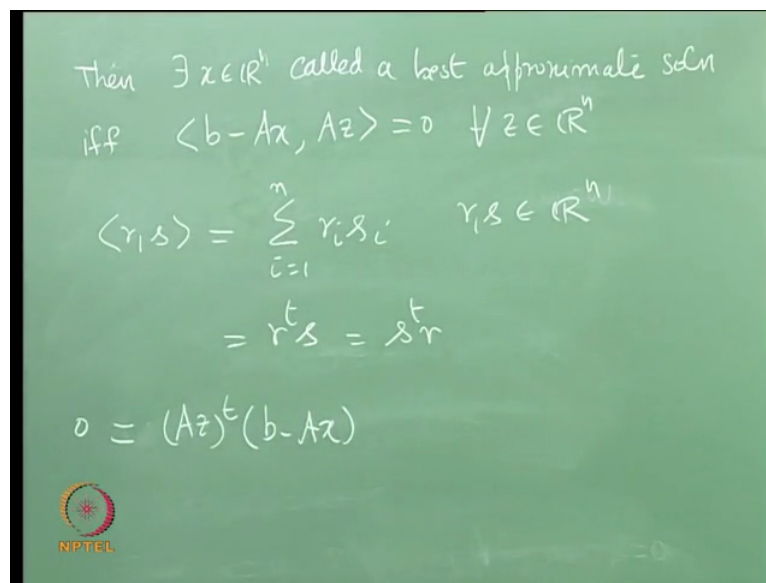 Then ∃ x ∈ ℝⁿ called a best approximate soln
iff ⟨b-Ax, Az⟩ = 0 ∀ z ∈ ℝⁿ
⟨r, s⟩ = ∑_{i=1}^{n} rᵢsᵢ r, s ∈ ℝⁿ
= rᵗs = sᵗr
0 = (Az)ᵗ(b-Ax)
NPTEL
=0